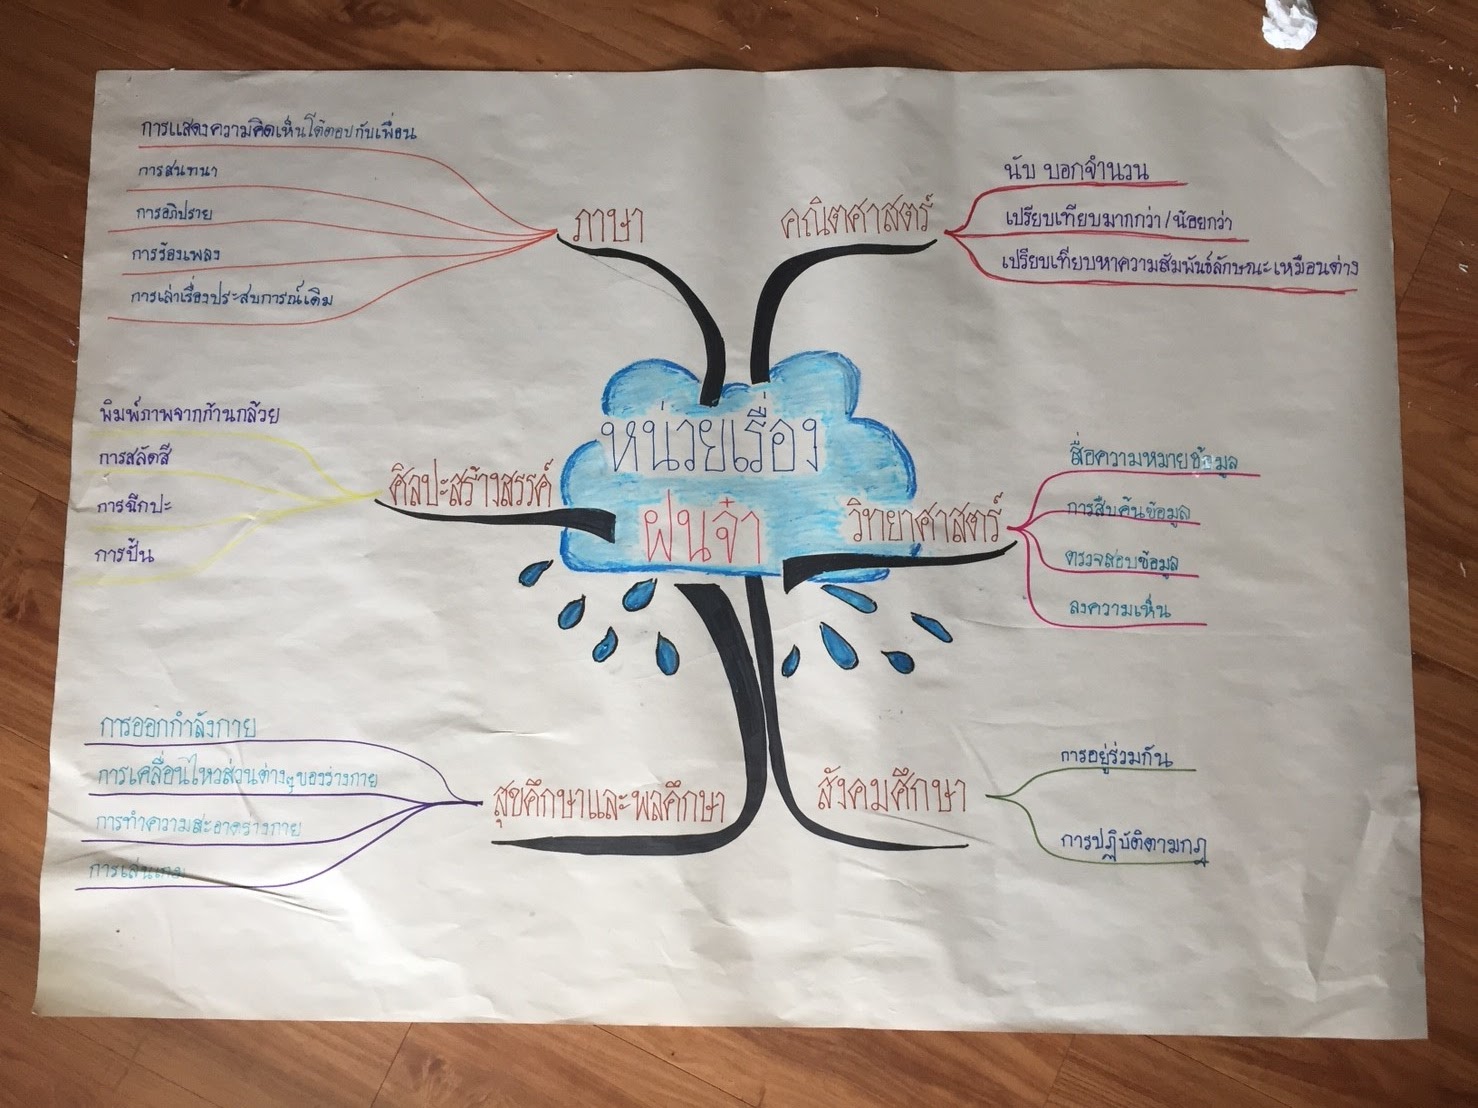 หน่วยเรื่อง
ฝนจ๋า
ภาษา
การแสดงความคิดเห็นโต้ตอบกับเพื่อน
การสนทนา
การอภิปราย
การร้องเพลง
การเล่าเรื่องประสบการณ์เดิม
คณิตศาสตร์
นับ บอกจำนวน
เปรียบเทียบมากกว่า/น้อยกว่า
เปรียบเทียบหาความสัมพันธ์ลักษณะเหมือนต่าง
ศิลปะสร้างสรรค์
พิมพ์ภาพจากก้านกล้วย
การสลัดสี
การฉีกปะ
การปั้น
วิทยาศาสตร์
สื่อความหมายข้อมูล
การสืบค้นข้อมูล
ตรวจสอบข้อมูล
ลงความเห็น
สุขศึกษาและพลศึกษา
การออกกำลังกาย
การเคลื่อนไหวส่วนต่างๆของร่างกาย
การทำความสะอาดร่างกาย
การเล่นเกม
สังคมศึกษา
การอยู่ร่วมกัน
การปฏิบัติตามกฎ